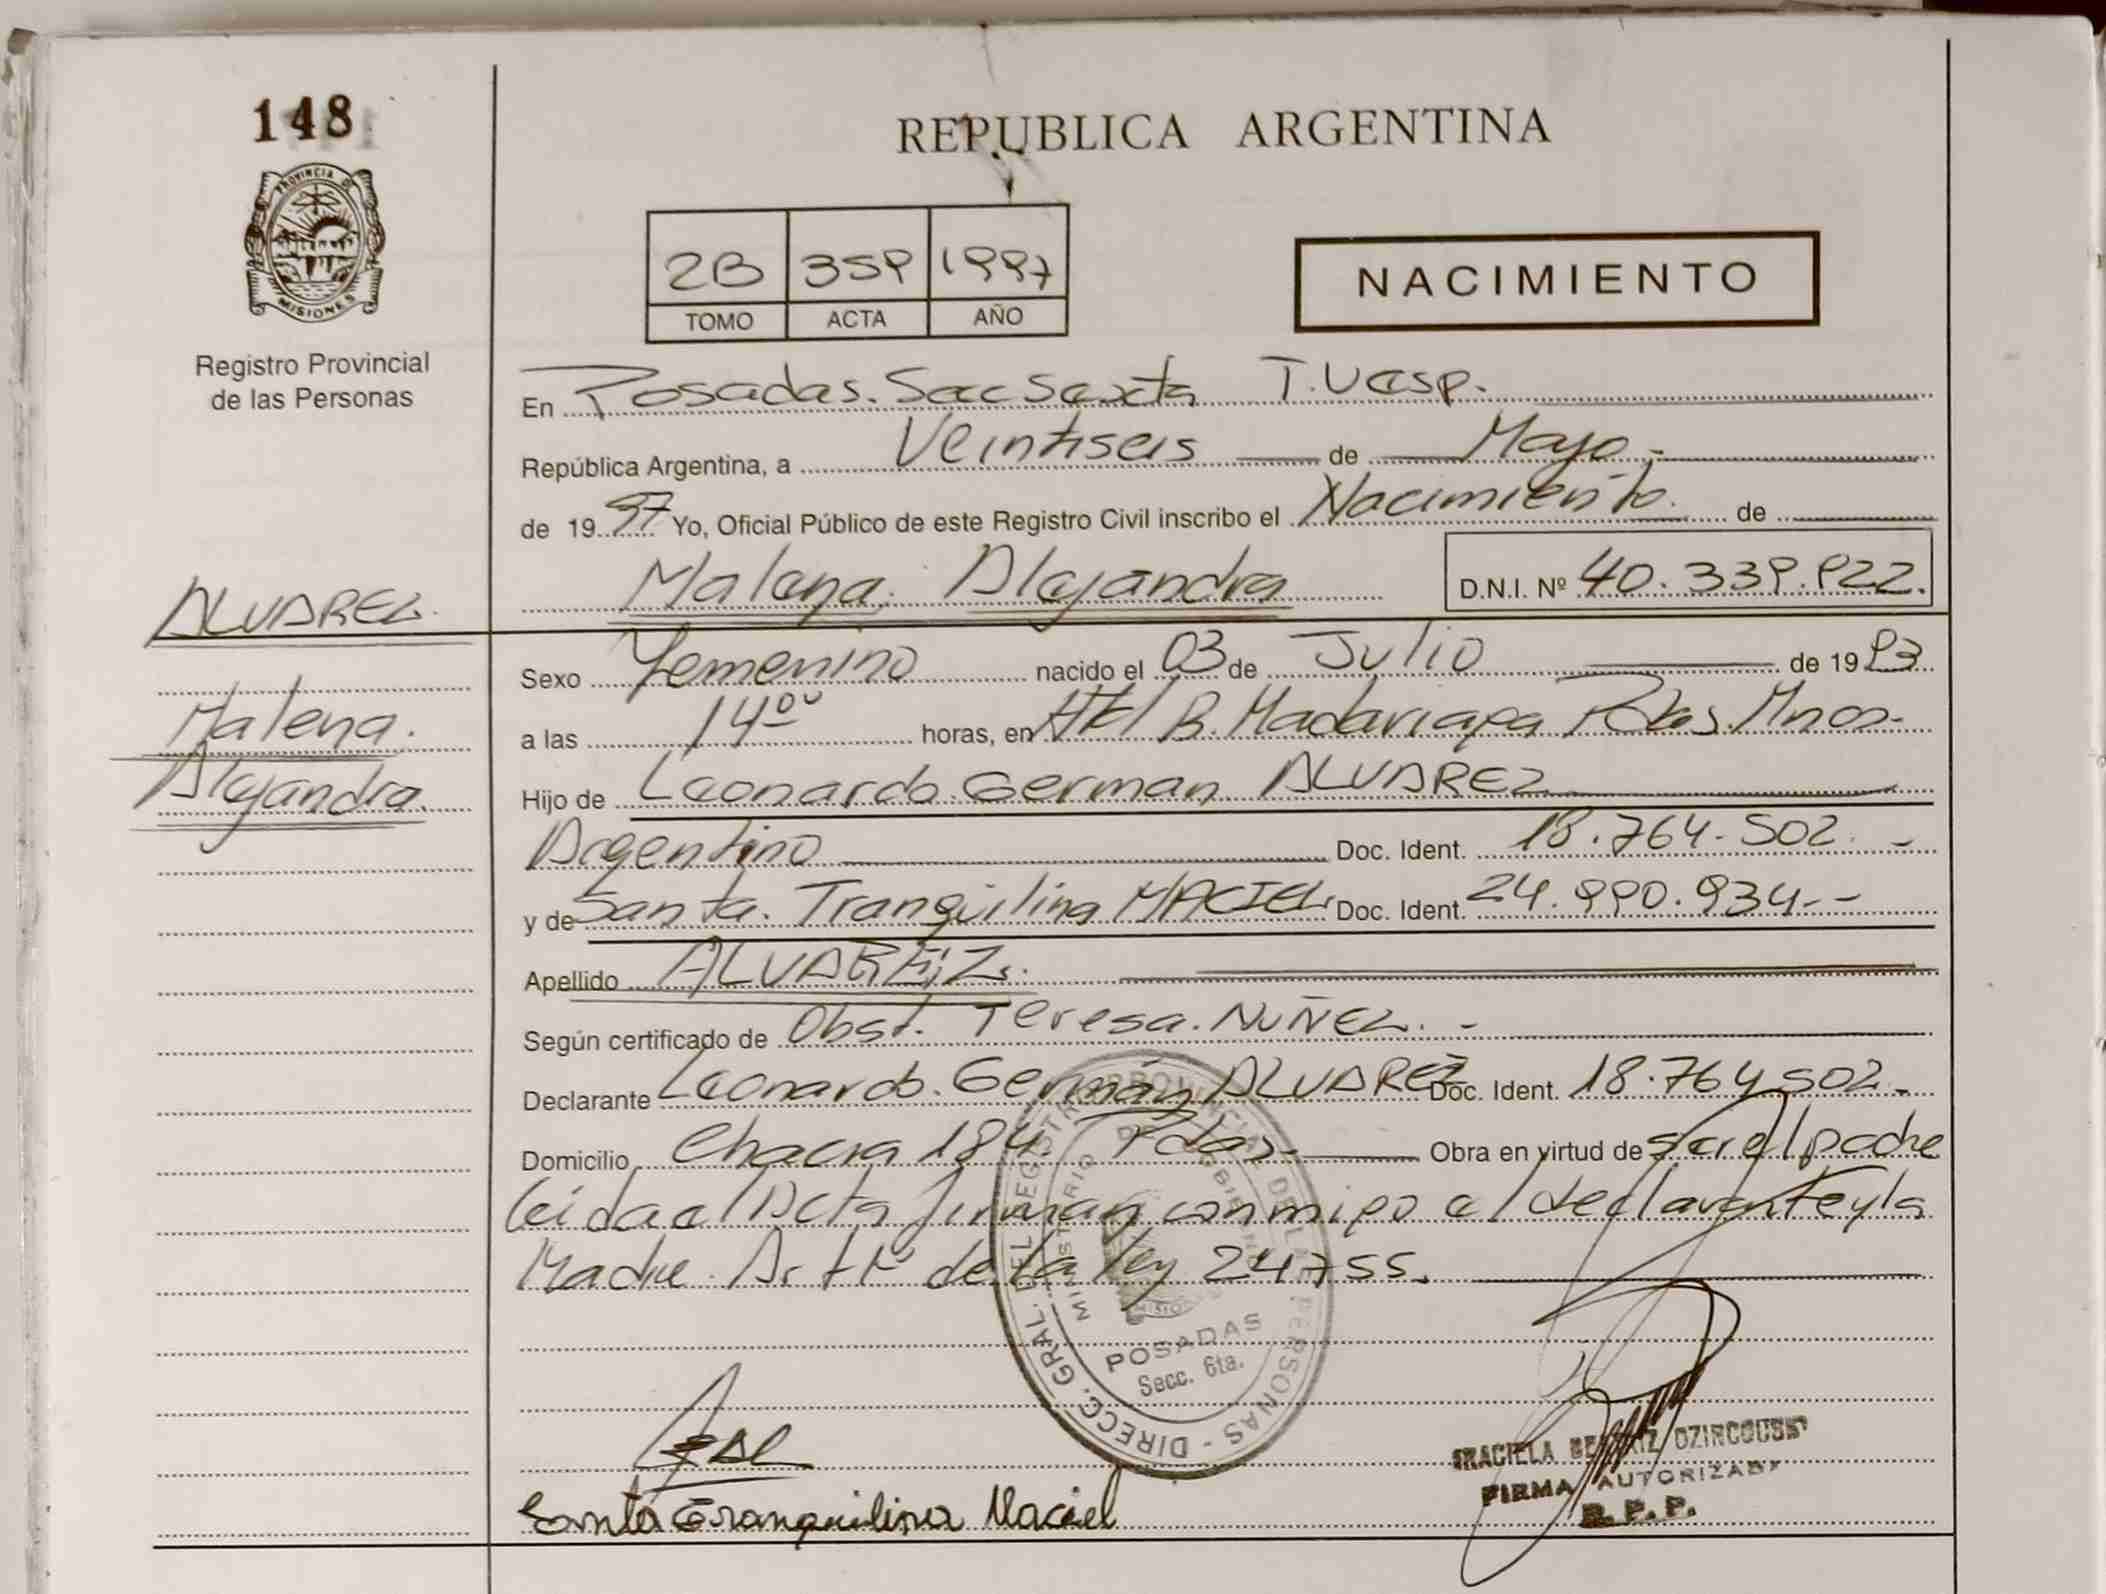 148
PROVINCIA DE
MISIONES
Registro Provincial
de las Personas
REPUBLICA ARGENTINA
2B 359 1997
TOMO ACTA AÑO
NACIMIENTO
En Posadas. Sec Sexta T. Vesp.
República Argentina, a Veintiseis de Mayo
de 1997 Yo, Oficial Público de este Registro Civil inscribo el Nacimiento. de
Malena. Alejandra D.N.I. Nº 40.339.922.
ALVAREZ.
Malena.
Alejandra.
Sexo Femenino nacido el 03 de Julio de 1993
a las 14⁰⁰ horas, en B. Madariaga Pdas. Mnes.
Hijo de Leonardo. German ALVAREZ
Argentino Doc. Ident. 18.764.502.
y de Santa. Tranquilina MACIEL Doc. Ident. 24.990.934
Apellido ALVAREZ.
Según certificado de Obst. Teresa. NUÑEZ.
Declarante Leonardo. Germán ALVAREZ Doc. Ident. 18.764.502
Domicilio Chacra 184. Pdas. Obra en virtud de ser el padre
leida el Acta firman conmigo el declarante y la
Madre. de la ley 24755.
DIRECC. GRAL. DEL REGISTRO PROVINCIAL DE LAS PERSONAS
MINISTERIO DE GOBIERNO
MISIONES
POSADAS
Secc. 6ta.
Santa Tranquilina Maciel
GRACIELA BEATRIZ
FIRMA AUTORIZADA
R. P. P.